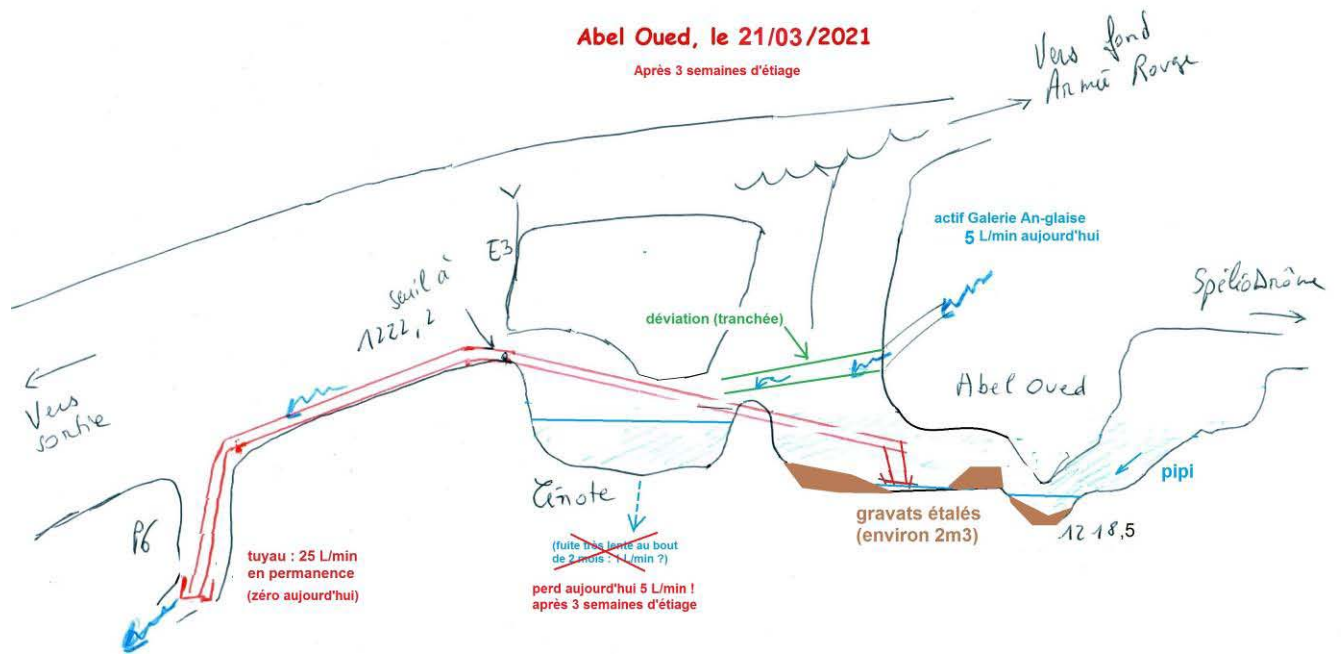 Abel Oued, le 21/03/2021
Après 3 semaines d'étiage
Vers fond
Armée Rouge
actif Galerie An-glaise
5 L/min aujourd'hui
E3
seuil à
1222,2
SpéléoDrôme
déviation (tranchée)
Vers
sortie
Abel Oued
Cénote
pipi
gravats étalés
(environ 2m3)
1218,5
P6
tuyau : 25 L/min
en permanence
(zéro aujourd'hui)
(fuite très lente au bout
de 2 mois : 1 L/min ?)
perd aujourd'hui 5 L/min !
après 3 semaines d'étiage